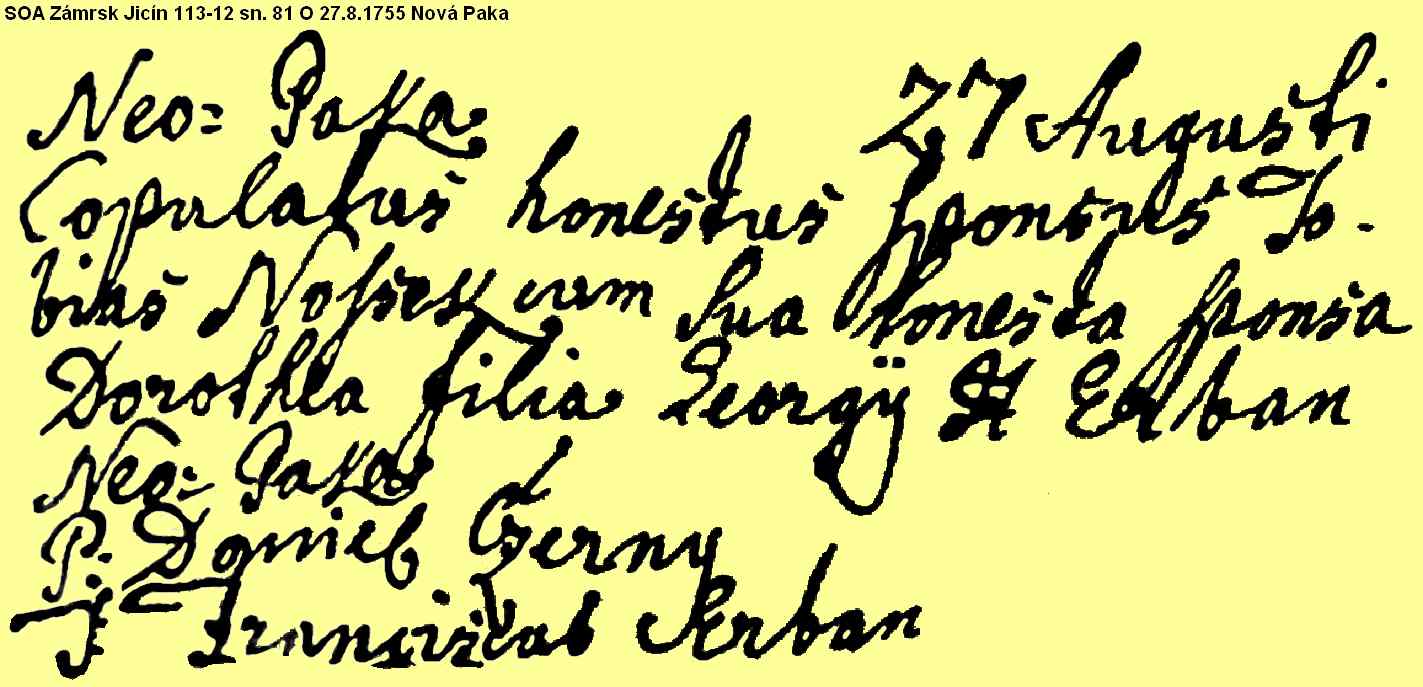 SOA Zámrsk Jicín 113-12 sn. 81 O 27.8.1755 Nová Paka
Neo= Paka 27 Augusti
Copulatus honestus sponsus To-
bias Nossek cum sua honesta sponsa
Dorothea filia Georgÿ Erban
Neo= Paka
P: Daniel Czerny
T Franciscus Erban